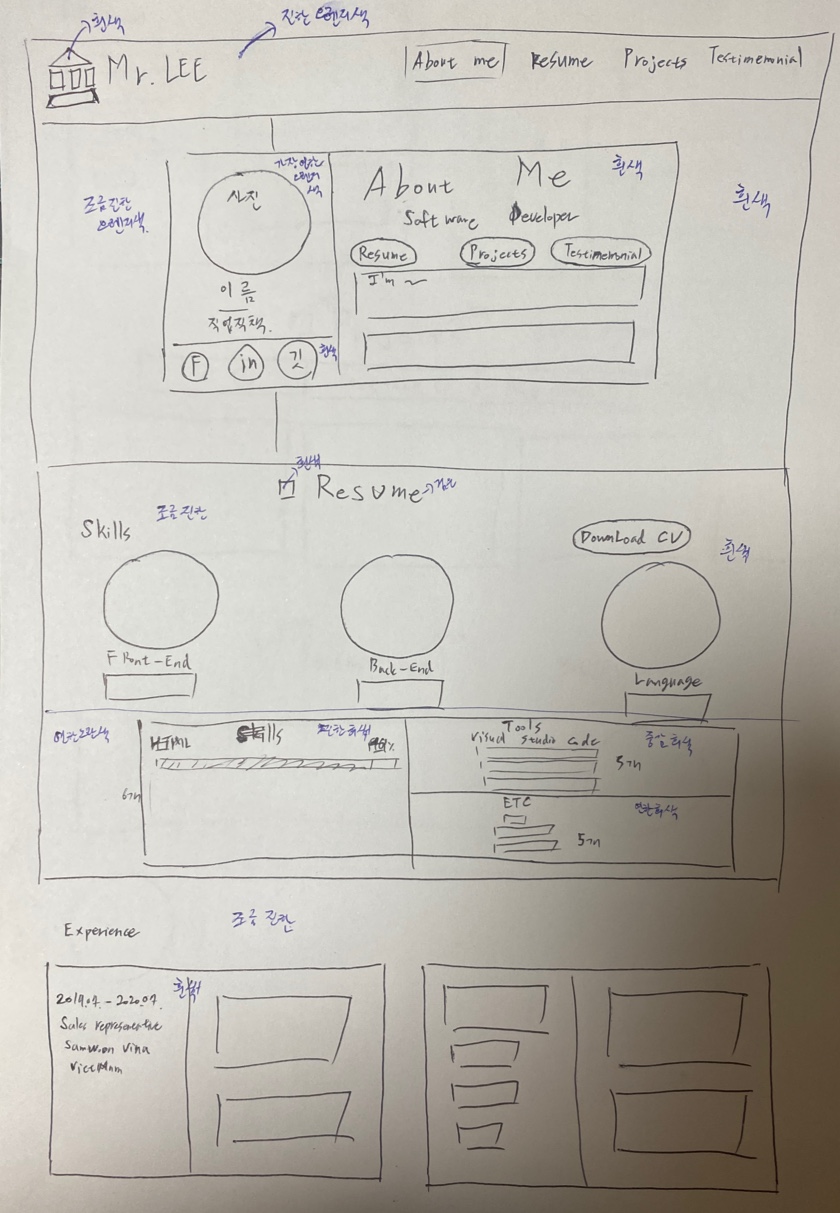 흰색
진한 오렌지색
Mr. LEE
About me
Resume
Projects
Testimemonial
조금진한
오렌지색
사진
가장연한
오렌지
색
About Me
흰색
흰색
Software Developer
Resume
Projects
Testimemonial
I'm ~
이름
직업직책.
F
in
깃
흰색
흰색
Resume
검은
조금 진한
Skills
DownLoad CV
흰색
Front-End
Back-End
Language
HTML
Skills
진한 회색
6개
Tools
Visual Studio Code
중간 회색
5개
ETC
연한회색
5개
조금 진한
Experience
흰색
2019.07. - 2020.07.
Sales representive
Samwon Vina
Vietnam